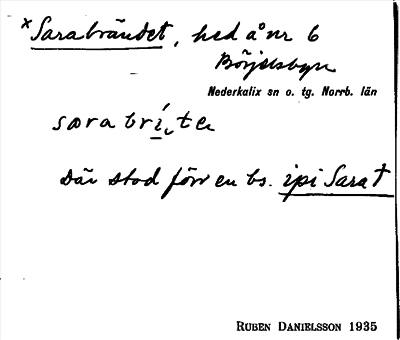 ×Sarabrändet, hed å nr 6
Börjelsbyn
Nederkalix sn o. tg. Norrb. län
Där stod förr en bs. ipi Sara †
RUBEN DANIELSSON 1935